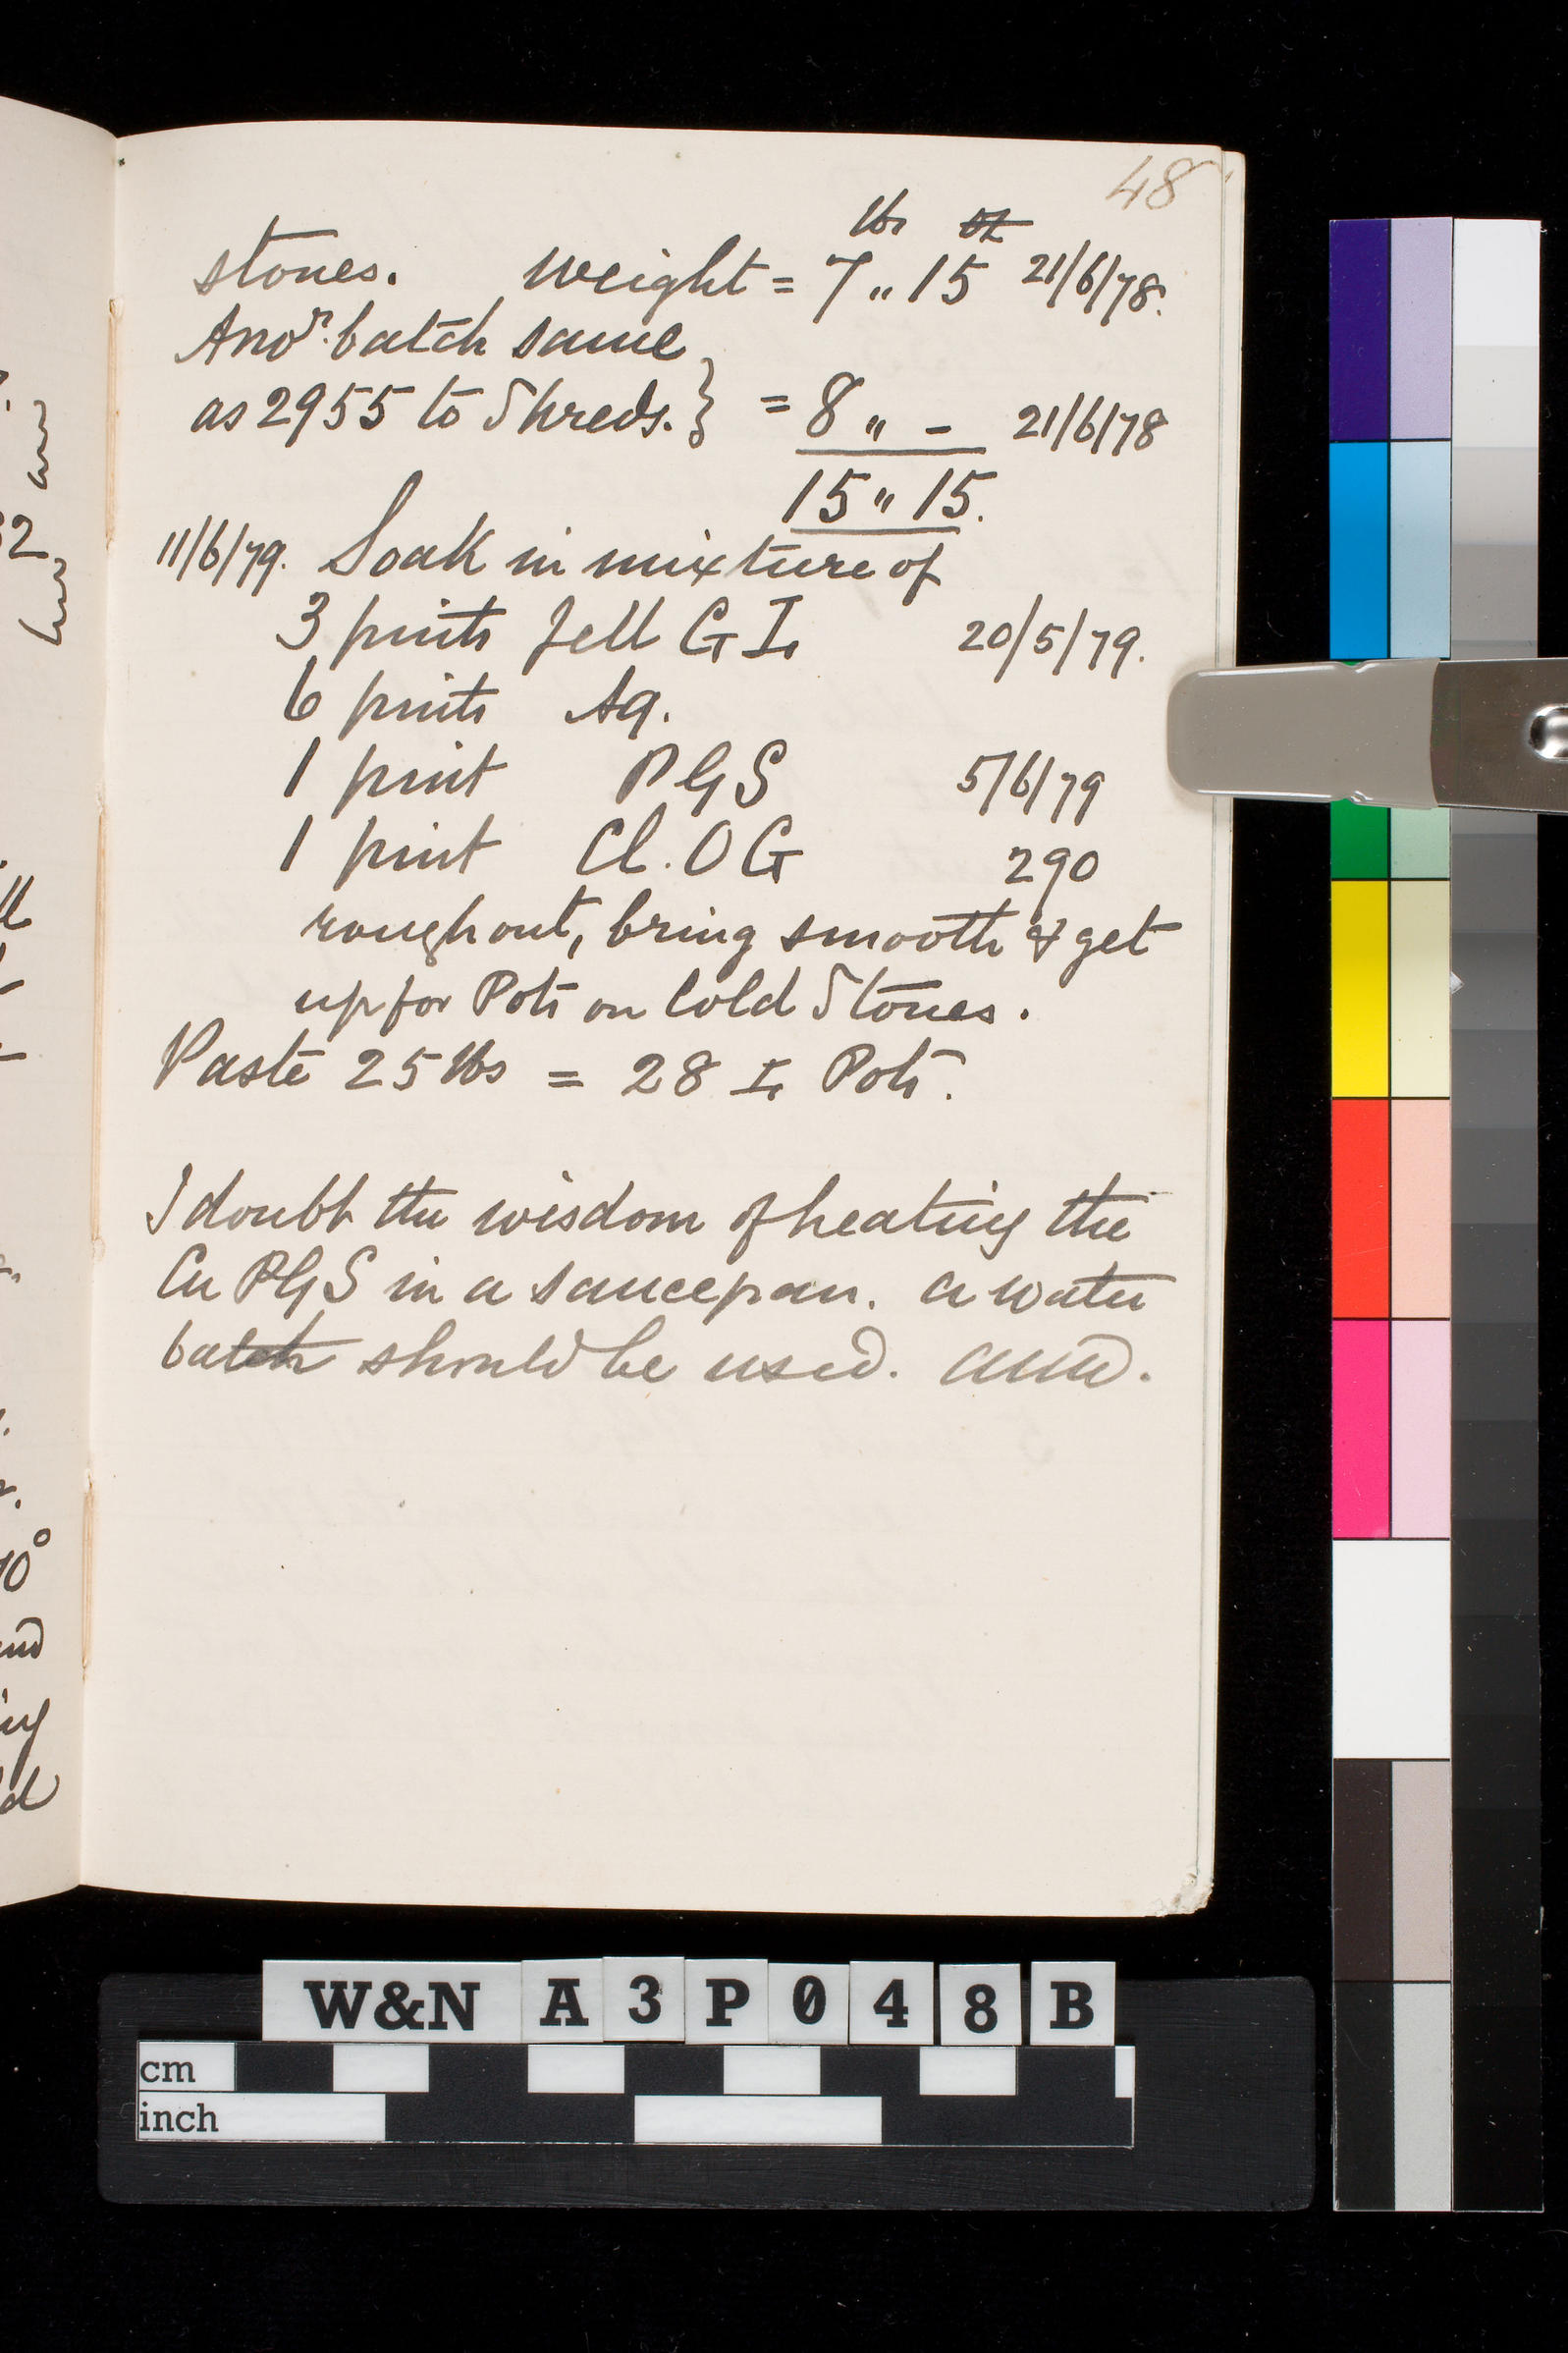 48
lbs oz
stones. weight = 7 " 15 21/6/78.
Anor. batch same
as 2955 to Shreds. } = 8 " - 21/6/78
15 " 15.
11/6/79. Soak in mixture of
3 pints Jell G I. 20/5/79.
6 pints Aq.
1 pint PGS 5/6/79
1 pint Cl. O G 290
rough out, bring smooth & get
up for Pots on Cold Stones.
Paste 25 lbs = 28 I. Pots.
I doubt the wisdom of heating the
Cu PGS in a saucepan. A water
batch should be used.
W&N A 3 P 0 4 8 B
cm
inch